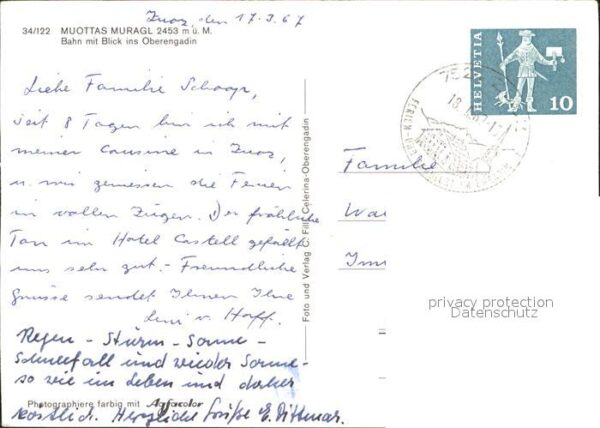 Zuoz, den 17.9.67
34/122 MUOTTAS MURAGL 2453 m ü. M.
Bahn mit Blick ins Oberengadin
Liebe Familie Schoop,
seit 8 Tagen bin ich mit
meiner Cousine in Zuoz,
u. wir geniessen die Ferien
in vollen Zügen. Der fröhliche
Ton im Hotel Castell gefällt
uns sehr gut. - Freundliche
Grüsse sendet Ihnen Ihre
Leni v. Hoff.
Regen - Sturm - Sonne -
Schneefall und wieder Sonne -
so wie im Leben und daher
köstlich. Herzliche Grüße E. Dittmar.
Photographiere farbig mit Agfacolor
Foto und Verlag C. Filli, Celerina-Oberengadin
HELVETIA
10
752
18.
FERIEN-
Familie
privacy protection
Datenschutz